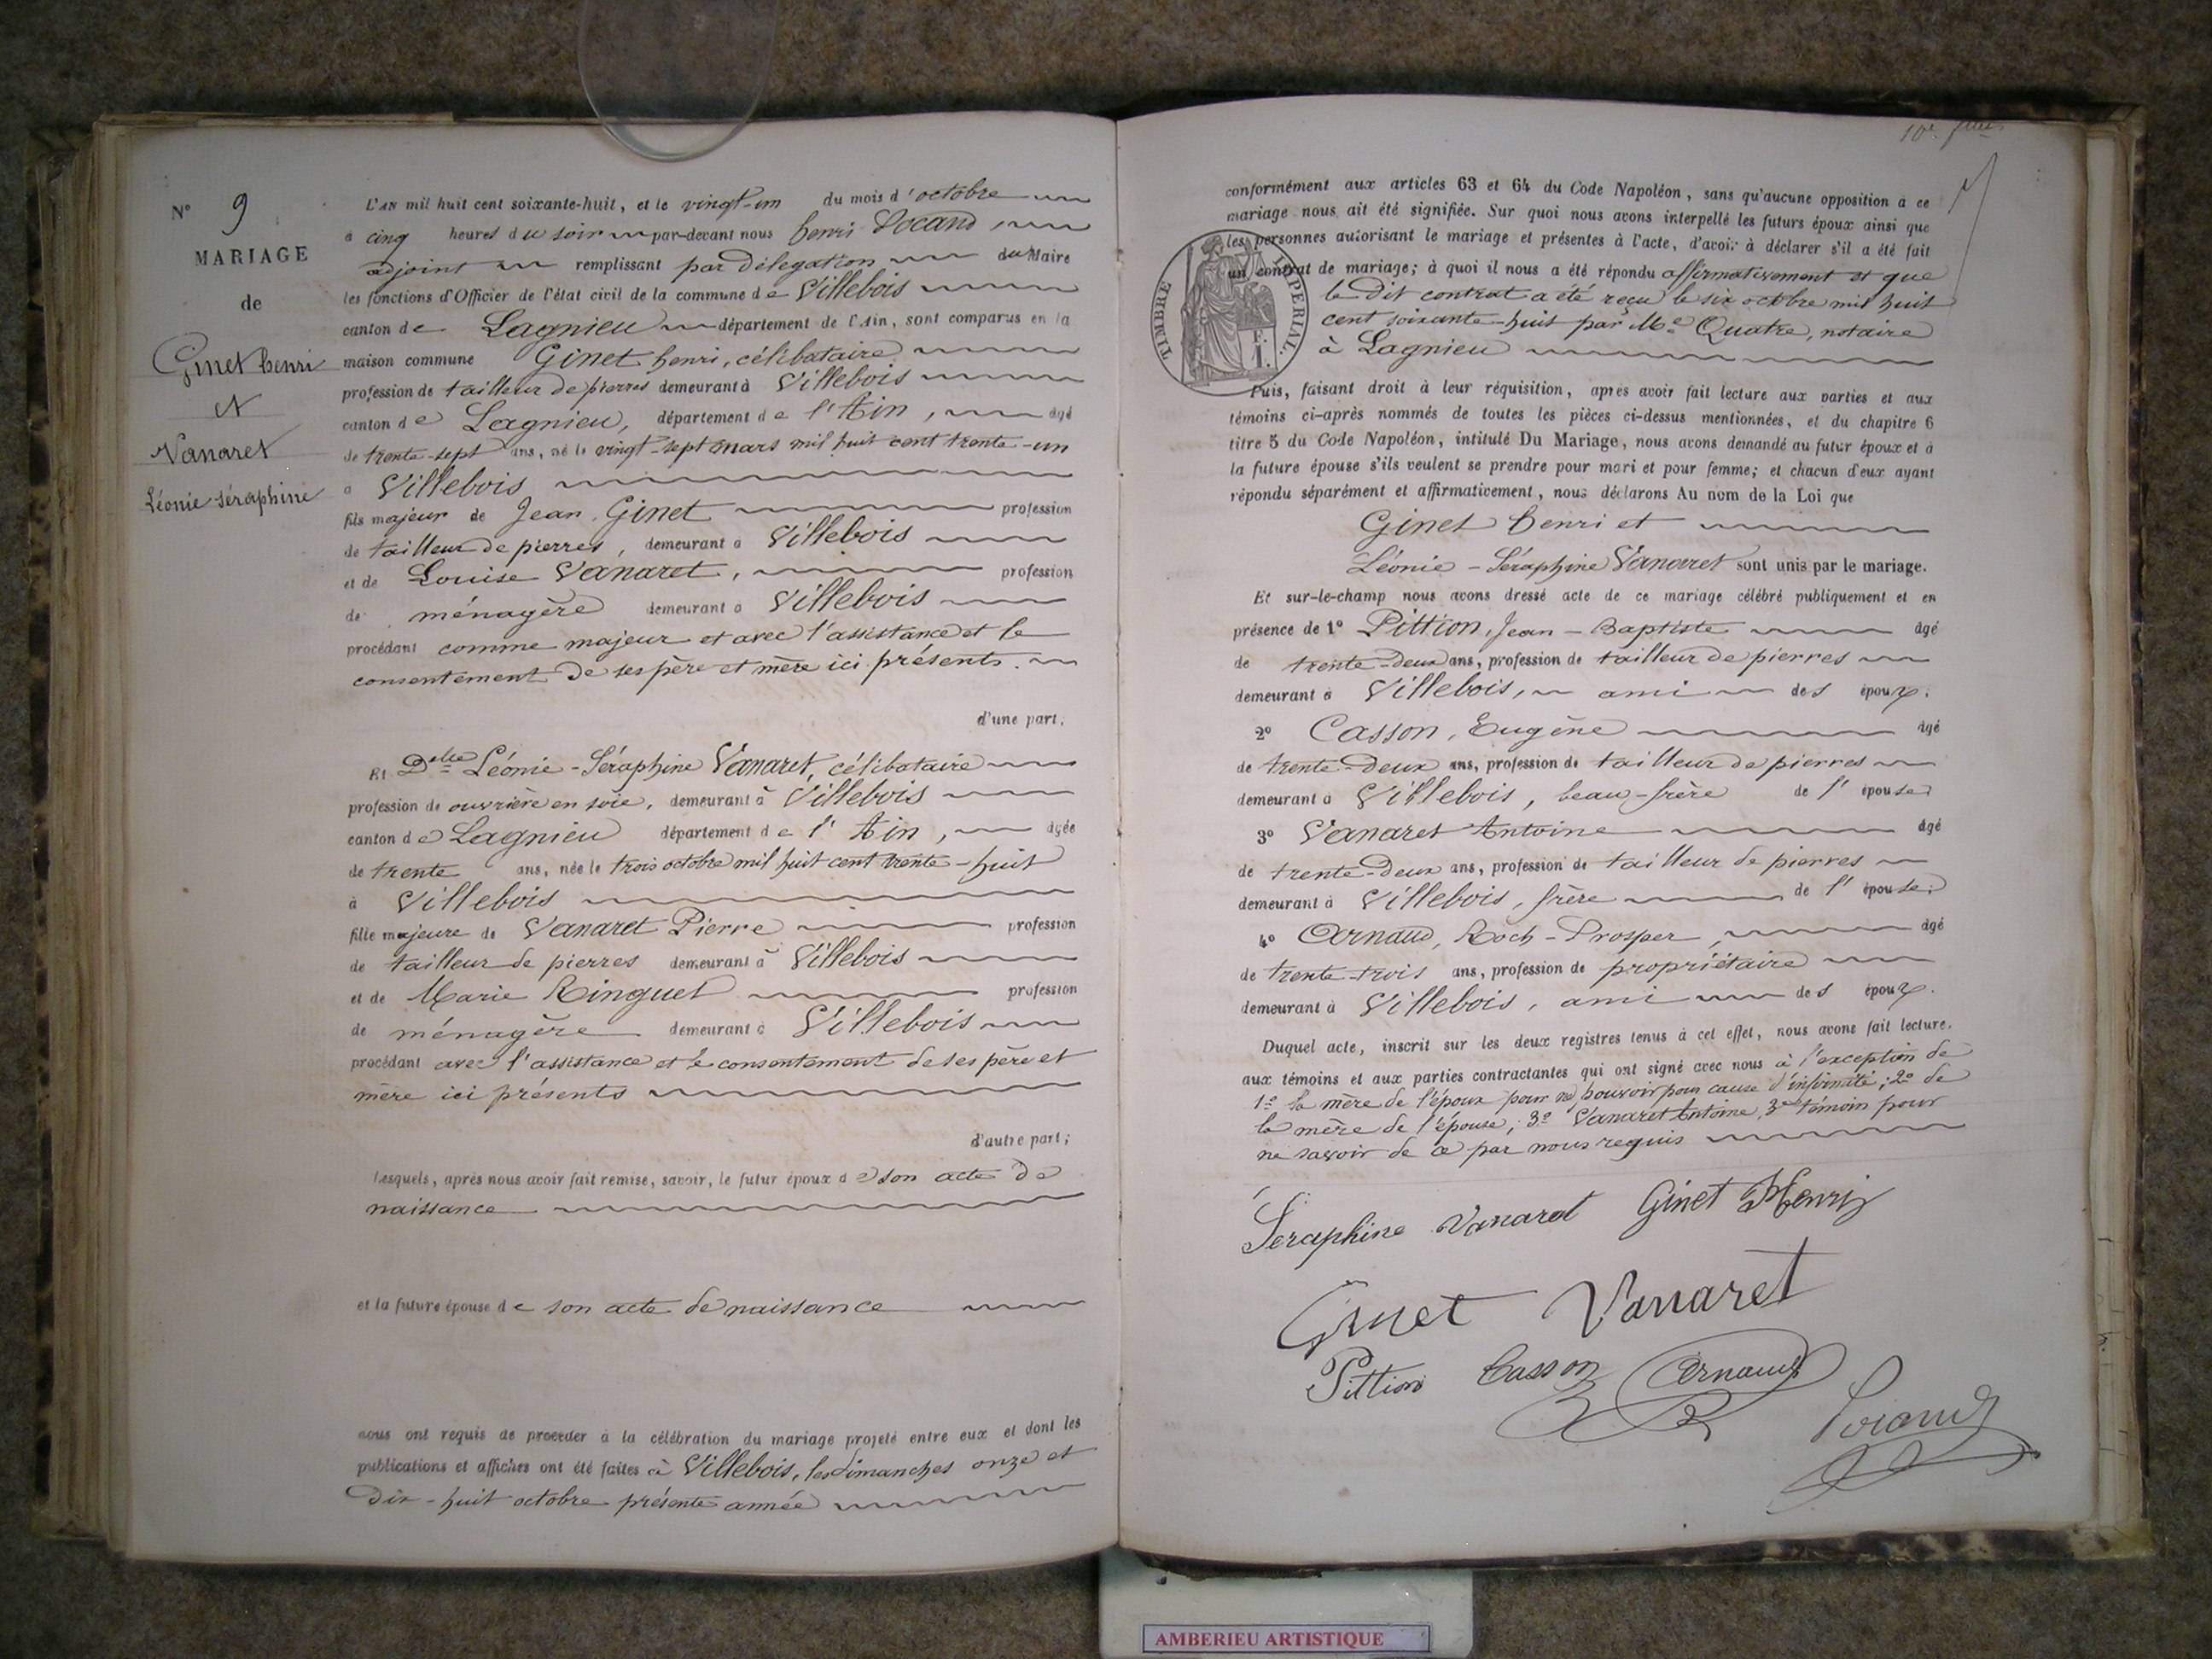 N° 9
MARIAGE
de
Ginet henri
et
Vanaret
Léonie Séraphine
L'AN mil huit cent soixante-huit, et le vingt-un du mois d'octobre
à cinq heures du soir par-devant nous henri Locand,
adjoint remplissant par délégation du Maire
les fonctions d'Officier de l'état civil de la commune de Villebois
canton de Lagnieu département de l'Ain, sont comparus en la
maison commune Ginet henri, célibataire
profession de tailleur de pierres demeurant à Villebois
canton de Lagnieu, département de l'Ain, âgé
de trente-sept ans, né le vingt-sept mars mil huit cent trente-un
à Villebois
fils majeur de Jean Ginet profession
de tailleur de pierres, demeurant à Villebois
et de Louise Vanaret, profession
de ménagère demeurant à Villebois
procédant comme majeur et avec l'assistance et le
consentement de ses père et mère ici présents.
d'une part;
Et Delle Léonie-Séraphine Vanaret, célibataire
profession de ouvrière en soie, demeurant à Villebois
canton de Lagnieu département de l'Ain, âgée
de trente ans, née le trois octobre mil huit cent trente-huit
à Villebois
fille majeure de Vanaret Pierre profession
de tailleur de pierres demeurant à Villebois
et de Marie Ringuet profession
de ménagère demeurant à Villebois
procédant avec l'assistance et le consentement de ses père et
mère ici présents
d'autre part;
Lesquels, après nous avoir fait remise, savoir, le futur époux de son acte de
naissance
et la future épouse de son acte de naissance
nous ont requis de procéder à la célébration du mariage projeté entre eux et dont les
publications et affiches ont été faites à Villebois, les dimanches onze et
dix-huit octobre présente année
10e
conformément aux articles 63 et 64 du Code Napoléon, sans qu'aucune opposition à ce
mariage nous ait été signifiée. Sur quoi nous avons interpellé les futurs époux ainsi que
les personnes autorisant le mariage et présentes à l'acte, d'avoir à déclarer s'il a été fait
un contrat de mariage; à quoi il nous a été répondu affirmativement et que
le dit contrat a été reçu le six octobre mil huit
cent soixante-huit par Me Quatre, notaire
à Lagnieu
TIMBRE IMPERIAL.
E.
1.
Puis, faisant droit à leur réquisition, après avoir fait lecture aux parties et aux
témoins ci-après nommés de toutes les pièces ci-dessus mentionnées, et du chapitre 6
titre 5 du Code Napoléon, intitulé Du Mariage, nous avons demandé au futur époux et à
la future épouse s'ils veulent se prendre pour mari et pour femme; et chacun d'eux ayant
répondu séparément et affirmativement, nous déclarons Au nom de la Loi que
Ginet henri et
Léonie-Séraphine Vanaret sont unis par le mariage.
Et sur-le-champ nous avons dressé acte de ce mariage célébré publiquement et en
présence de 1° Pittion, Jean-Baptiste âgé
de trente-deux ans, profession de tailleur de pierres
demeurant à Villebois, ami des époux.
2° Casson, Eugène âgé
de trente-deux ans, profession de tailleur de pierres
demeurant à Villebois, beau-frère de l'épouse
3° Vanaret Antoine âgé
de trente-deux ans, profession de tailleur de pierres
demeurant à Villebois, frère de l'épouse;
4° Arnaud, Roch-Prosper, âgé
de trente-trois ans, profession de propriétaire
demeurant à Villebois, ami des époux.
Duquel acte, inscrit sur les deux registres tenus à cet effet, nous avons fait lecture,
aux témoins et aux parties contractantes qui ont signé avec nous à l'exception de
1° la mère de l'époux pour ne pouvoir pour cause d'infirmité; 2° de
la mère de l'épouse; 3° Vanaret Antoine, 3e témoin pour
ne savoir de ce par nous requis
Séraphine Vanaret Ginet Henri
Ginet Vanaret
Pittion Casson Arnaud
Locand
AMBERIEU ARTISTIQUE